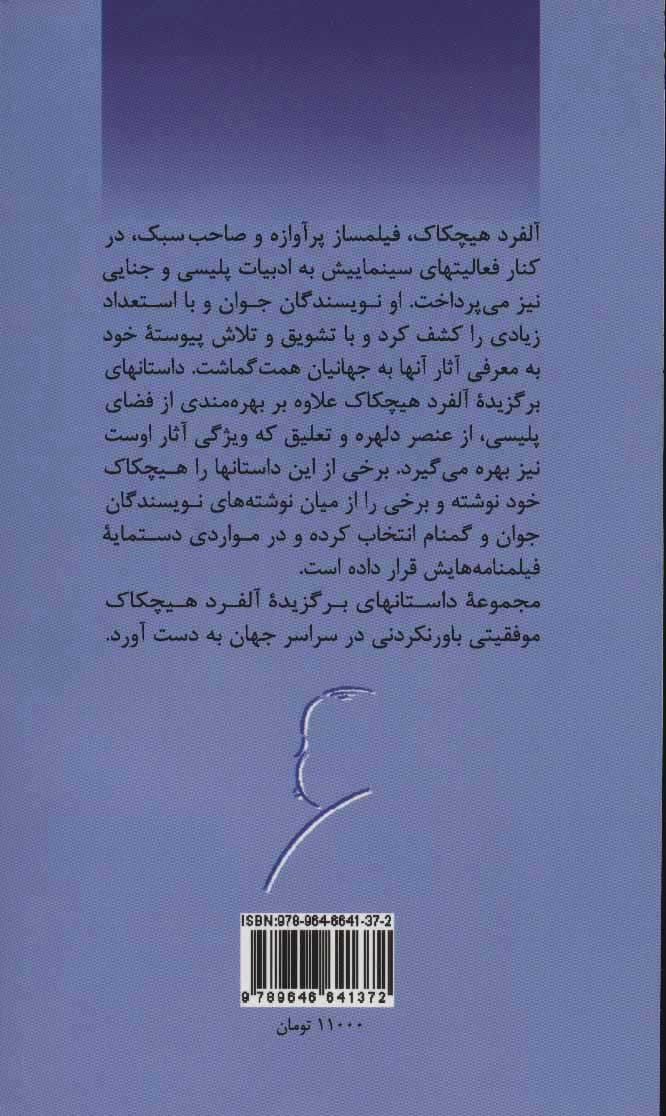 آلفرد هیچکاک، فیلمساز پرآوازه و صاحب‌سبک، در
کنار فعالیتهای سینماییش به ادبیات پلیسی و جنایی
نیز می‌پرداخت. او نویسندگان جوان و با استعداد
زیادی را کشف کرد و با تشویق و تلاش پیوستهٔ خود
به معرفی آثار آنها به جهانیان همت گماشت. داستانهای
برگزیدهٔ آلفرد هیچکاک علاوه بر بهره‌مندی از فضای
پلیسی، از عنصر دلهره و تعلیق که ویژگی آثار اوست
نیز بهره می‌گیرد. برخی از این داستانها را هیچکاک
خود نوشته و برخی را از میان نوشته‌های نویسندگان
جوان و گمنام انتخاب کرده و در مواردی دستمایهٔ
فیلمنامه‌هایش قرار داده است.
مجموعهٔ داستانهای برگزیدهٔ آلفرد هیچکاک
موفقیتی باورنکردنی در سراسر جهان به دست آورد.
ISBN:978-964-6641-37-2
9 789646 641372
۱۱۰۰۰ تومان